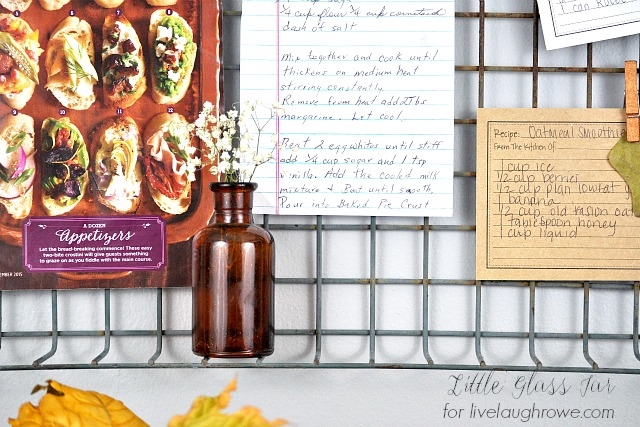 5
6
7
8
9
10
11
12
A DOZEN
Appetizers
Let the bread-breaking commence! These easy
two-bite crostini will give guests something
to graze on as you fiddle with the main course.
EMBER 2015
1/4 cup flour 1/4 cup cornstarch
dash of salt
Mix together and cook until
thickens on medium heat
stirring constantly
Remove from heat add 2 Tbs
margarine. Let cool,
Beat 2 egg whites until stiff
add 1/4 cup sugar and 1 tsp
vinilla. Add the cooled milk
mixture & Beat until smooth,
Pour into Baked Pie Crust
I can
Recipe: Oatmeal Smoothie
From The Kitchen Of
1 cup ice
1/2 cup berries
1/2 cup plain lowfat y
banana
1/2 cup old fasion oat
1 tablespoon honey
1 cup liquid
Little Glass Jar
for livelaughrowe.com